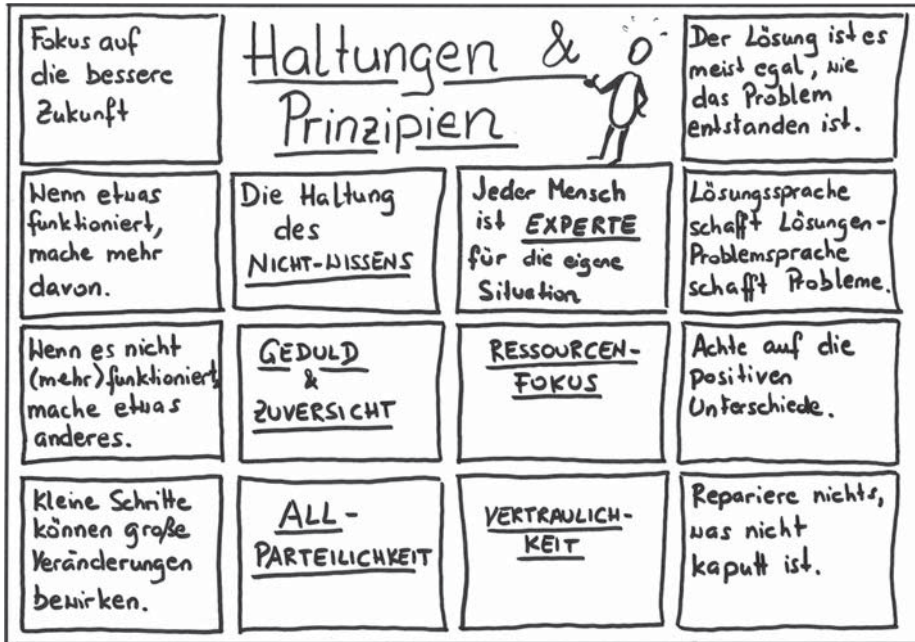 Haltungen &
Prinzipien
Fokus auf
die bessere
Zukunft
Der Lösung ist es
meist egal, wie
das Problem
entstanden ist.
Wenn etwas
funktioniert,
mache mehr
davon.
Die Haltung
des
NICHT-WISSENS
Jeder Mensch
ist EXPERTE
für die eigene
Situation
Lösungssprache
schafft Lösungen-
Problemsprache
schafft Probleme.
Wenn es nicht
(mehr) funktioniert,
mache etwas
anderes.
GEDULD
&
ZUVERSICHT
RESSOURCEN-
FOKUS
Achte auf die
positiven
Unterschiede.
Kleine Schritte
können große
Veränderungen
bewirken.
ALL-
PARTEILICHKEIT
VERTRAULICH-
KEIT
Repariere nichts,
was nicht
kaputt ist.